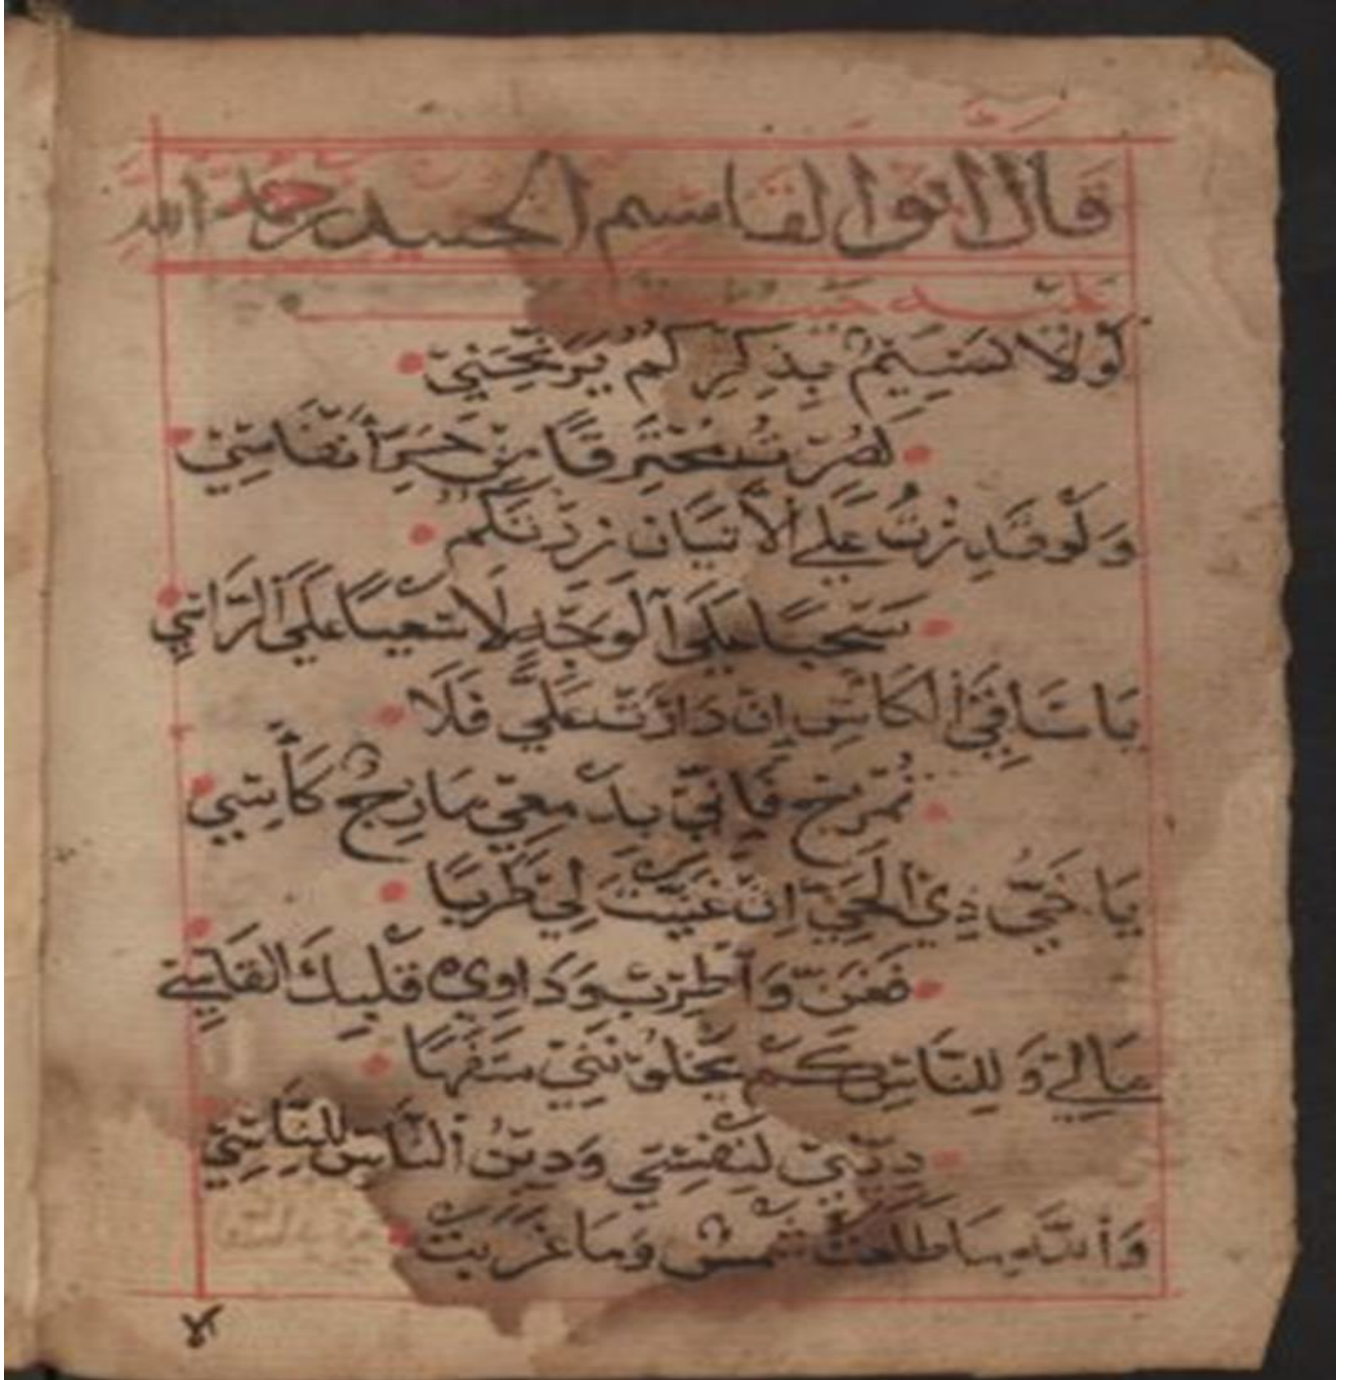 قَالَ ابُو القَاسِم الجنيد رحمة الله
عليه
لَوْلَا نَسِيْمٌ بِذِكْرِكُمْ يُرَنِّحُنِيْ
لَصُرْتُ مُحْتَرِقًا مِنْ حَرِّ أَنْفَاسِيْ
وَلَوْ قَدِرْتُ عَلَي الْاِتْيَانِ زُرْتُكُمُ
سَحْبًا عَلَى الْوَجْهِ لَا سَعْيًا عَلَى الرَّاسِي
يَا سَاقِيَ الْكَاسِ اِنْ دَارَتْ عَلَيَّ فَلَا
تَمْزِجْ فَاِنِّيْ بِدَمْعِيْ مَازِجٌ كَأْسِي
يَا حَيَّ دِي الْحَيِّ اِنْ غَنَّيْتَ لِيْ طَرَبًا
فَغَنِّ وَاَطْرِبْ وَدَاوِي قَلْبَكَ القَاسِي
مَالِيْ وَلِلنَّاسِ كَمْ يَلْحُوْنَنِيْ سَفَهًا
دِيْنِيْ لِنَفْسِيْ وَدِيْنُ النَّاسِ لِلنَّاسِيْ
وَاللَّهِ مَا طَلَعَتْ شَمْسٌ وَمَا غَرَبَتْ
الا